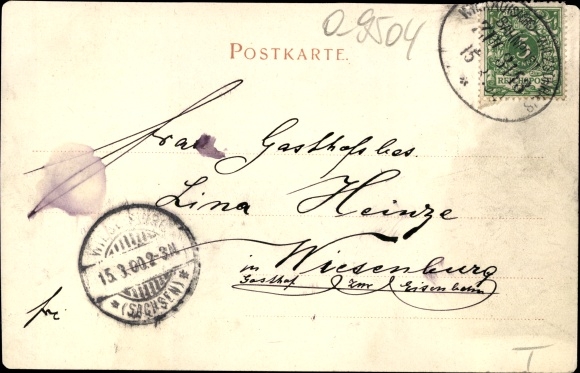 O 9504
POSTKARTE.
REICHSPOST
Frau Gasthofsbes.
Lina Heinze
in Wiesenburg
Gasthof zur Eisenbahn
15.9.00.2-3N
(SACHSEN)
fr:
I